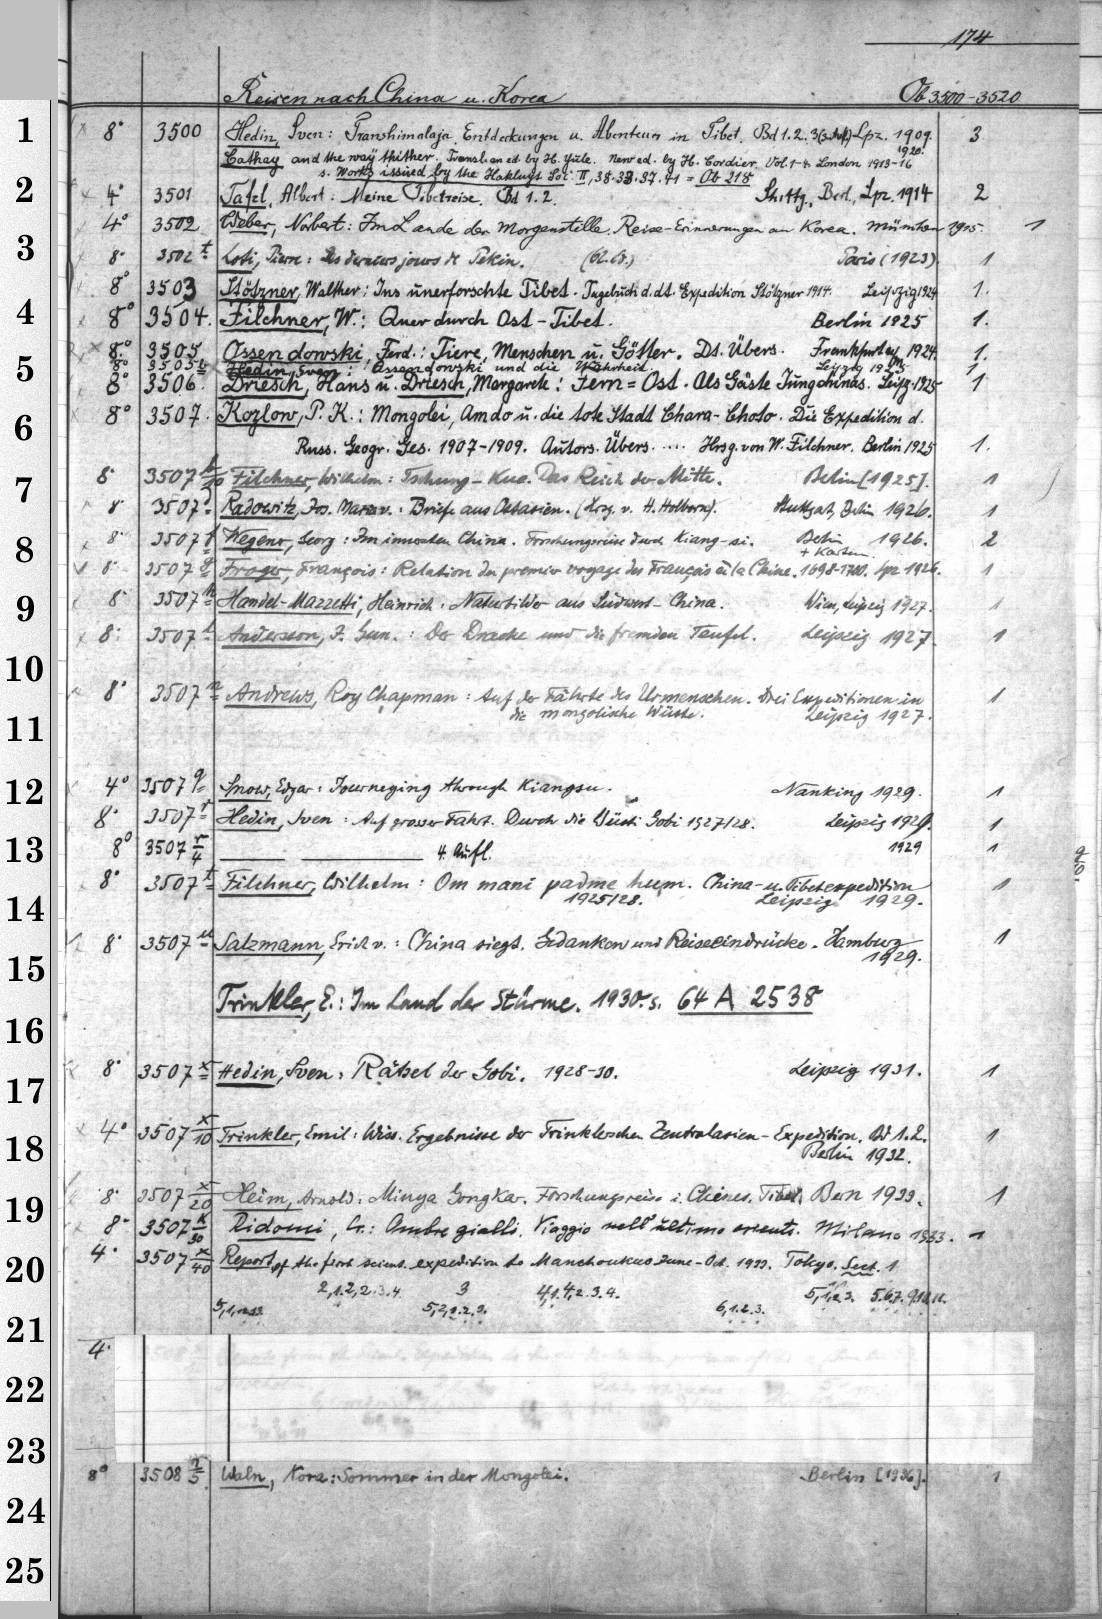 174
Reisen nach China u. Korea Ob 3500-3520
1
8° 3500 Hedin, Sven: Transhimalaja. Entdeckungen u. Abenteuer in Tibet. Bd 1.2. 3 Lpz. 1909. 3
1920.
Cathay and the way thither. Transl. an ed. by H. Yule. New ed. by H. Cordier. Vol. 1-4. London 1913-16
s. Works issued by the Hakluyt Soc. II, 38.33.37.41 = Ob 218
2
4° 3501 Tafel, Albert: Meine Tibetreise. Bd 1.2. Stuttg., Berl., Lpz. 1914 2
4° 3502 Weber, Norbert: Im Lande der Morgenstille. Reise-Erinnerungen an Korea. München 1915. 1
3
8° 3502 t Loti, Pierre: Les derniers jours de Pékin. Paris (1923). 1
8° 3503 Stötzner, Walther: Ins unerforschte Tibet. Tagebuch d. dt. Expedition Stötzner 1914. Leipzig 1924 1.
4
8° 3504. Filchner, W.: Quer durch Ost-Tibet. Berlin 1925 1.
8° 3505 Ossendowski, Ferd.: Tiere, Menschen u. Götter. Dt. Übers. Frankfurt a/M 1924. 1.
5
8° 3505 Hedin, Sven: Ossendowski und die Wahrheit. Leipzig 1925. 1
8° 3506. Driesch, Hans u. Driesch, Margarete: Fern-Ost. Als Gäste Jungchinas. Leipz. 1925 1
6
8° 3507. Kozlow, P. K.: Mongolei, Amdo u. die tote Stadt Chara-Choto. Die Expedition d.
Russ. Geogr. Ges. 1907-1909. Autors. Übers. .... Hrsg. von W. Filchner. Berlin 1925 1.
7
8° 3507 Filchner, Wilhelm: Tschung-Kuo. Das Reich der Mitte. Berlin [1925]. 1
8° 3507 Radowitz, Jos. Maria v.: Briefe aus Ostasien. (Hrsg. v. H. Holborn). Stuttgart, Berlin 1926. 1
8
8° 3507 f Wegener, Georg: Im innersten China. Forschungsreise durch Kiang-si. Berlin 1926. 2
+ Karten
8° 3507 g Froger, François: Relation du premier voyage des François à la Chine. 1698-1700. Lpz 1926. 1
9
8° 3507 h Handel-Mazzetti, Heinrich: Naturbilder aus Südwest-China. Wien, Leipzig 1927. 1
8° 3507 Andersson, J. Gun.: Der Drache und die fremden Teufel. Leipzig 1927 1
10
8° 3507 n Andrews, Roy Chapman: Auf der Fährte des Urmenschen. Drei Expeditionen in 1
die mongolische Wüste. Leipzig 1927.
11
12
4° 3507 q Snow, Edgar: Journeying through Kiangsu. Nanking 1929. 1
8° 3507 r Hedin, Sven: Auf grosser Fahrt. Durch die Wüste Gobi 1927/28. Leipzig 1929. 1
13
8° 3507 r/4 4. Aufl. 1929 1
8° 3507 t Filchner, Wilhelm: Om mani padme hum. China- u. Tibetexpedition 1
14
1925/28. Leipzig 1929.
8° 3507 u Salzmann, Erich v.: China siegt. Gedanken und Reiseeindrücke. Hamburg 1
1929.
15
Trinkler, E.: Im Land der Stürme. 1930. s. 64 A 2538
16
8° 3507 x Hedin, Sven: Rätsel der Gobi. 1928-30. Leipzig 1931. 1
17
4° 3507 x/10 Trinkler, Emil: Wiss. Ergebnisse der Trinklerschen Zentralasien-Expedition. Bd 1.2. 1
Berlin 1932.
18
8° 3507 x/20 Heim, Arnold: Minya Gongkar. Forschungsreise i. Chines. Tibet. Bern 1933. 1
19
8° 3507 x/30 Ridomi, Cr.: Ombre gialli. Viaggio nell' ultimo oriente. Milano 1933. 1
20
4° 3507 x/40 Report of the first scient. expedition to Manchoukuo June-Oct. 1933. Tokyo. Sect. 1
2,1.2,2.3.4. 3 4,1.4,2.3.4. 5,1,2.3.
6,1.2.3.
21
4°
22
23
8° 3508 n/5 Waln, Nora: Sommer in der Mongolei. Berlin [1936]. 1
24
25